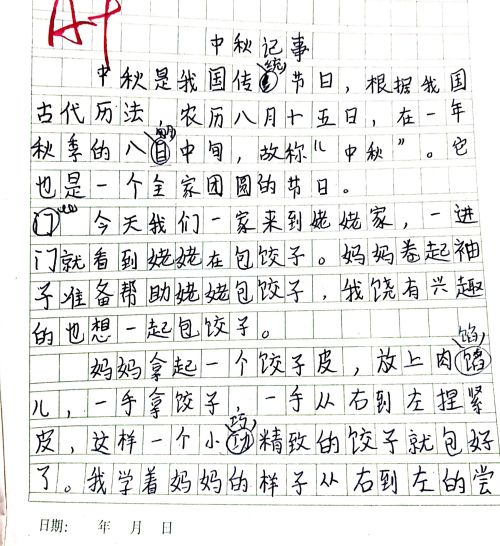 A+
中秋记事
中秋是我国传统节日，根据我国
古代历法，农历八月十五日，在一年
秋季的八月中旬，故称“中秋”。它
也是一个全家团圆的节日。
今天我们一家来到姥姥家，一进
门就看到姥姥在包饺子。妈妈卷起袖
子准备帮助姥姥包饺子，我饶有兴趣
的也想一起包饺子。
妈妈拿起一个饺子皮，放上肉馅
儿，一手拿饺子，一手从右到左捏紧
皮，这样一个小巧精致的饺子就包好
了。我学着妈妈的样子从右到左的尝
日期： 年 月 日